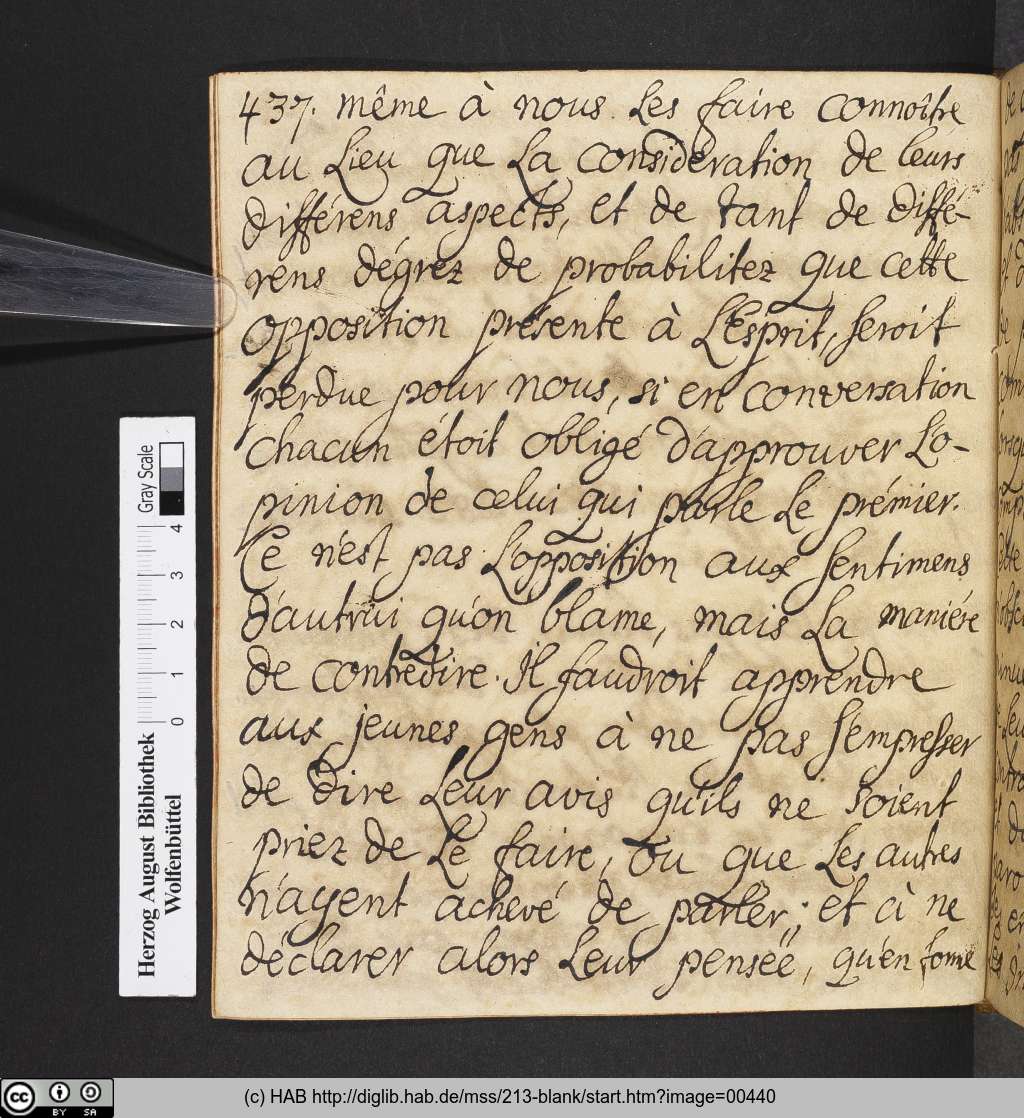 437. même à nous les faire connoître
au Lieu que La considération de leurs
différens aspects, et de tant de diffé-
rens dégrez de probabilitez que cette
opposition présente à L'Esprit, seroit
perdue pour nous, si en conversation
chacun étoit obligé d'approuver L'o-
pinion de celui qui parle Le prémier.
Ce n'est pas L'opposition aux sentimens
d'autrui qu'on blame, mais La maniére
de contredire. Il faudroit apprendre
aux jeunes gens à ne pas s'empresser
de dire Leur avis qu'ils ne soient
priez de Le faire, ou que Les autres
n'ayent achevé de parler; et à ne
déclarer alors Leur penseë, qu'en forme
Gray Scale
4
3
2
1
0
Herzog August Bibliothek
Wolfenbüttel
cc BY SA
(c) HAB http://diglib.hab.de/mss/213-blank/start.htm?image=00440